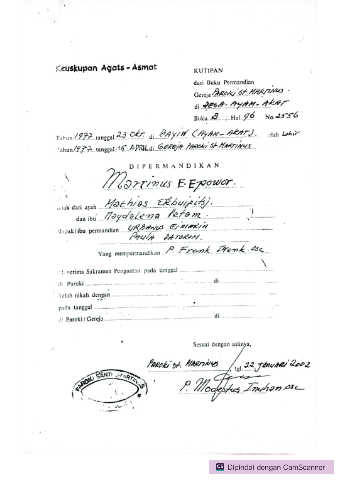 Keuskupan Agats - Asmat
KUTIPAN
dari Buku Permandian
Gereja PAROKI St. MARTINUS.
di DESA. AYAM - AKAT
Buku B Hal 96 No 2356
Tahun 1977 tanggal 23 OKT. di BAYIW (AYAM - AKAT). telah lahir
Tahun 1977 tanggal 16 APRIL di GEREJA PAROKI St. MARTINUS
DIPERMANDIKAN
Martinus E. Epowor.
anak dari ayah Mathias
dan ibu Magdalena
Bapak/ibu permandian URBANUS
PAULA
Yang mempermandikan P. Frank osc
telah terima Sakramen Penguatan pada tanggal
di Paroki di
telah nikah dengan
pada tanggal
di Paroki / Gereja di
Sesuai dengan aslinya,
PAROKI St. MARTINUS, tgl. 22 JANUARI 2002
PAROKI SANTO MARTINUS
P. Modestus osc
CS Dipindai dengan CamScanner